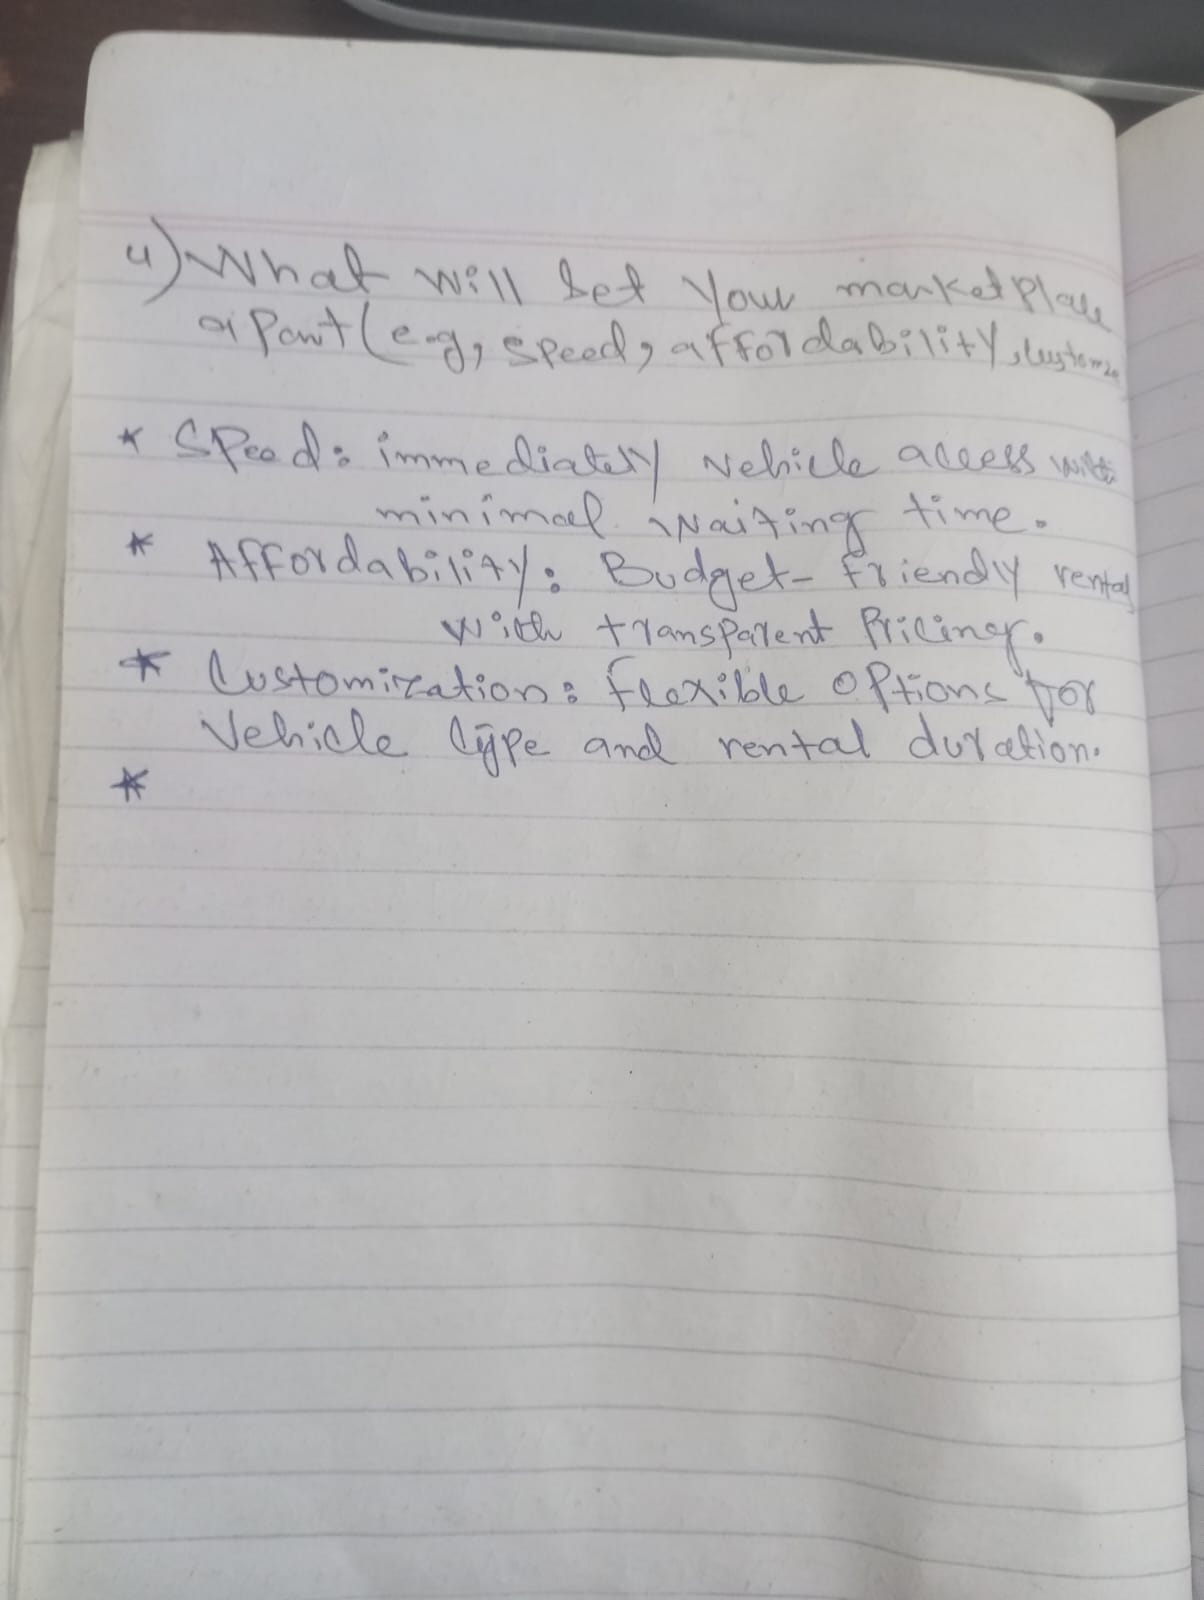 4) What will set your marketplace
apart (e.g, speed, affordability, custom
* Speed: immediately vehicle access with
minimal waiting time.
* Affordability: Budget-friendly rental
with transparent Pricing.
* Customization: flexible options for
Vehicle type and rental duration.
*